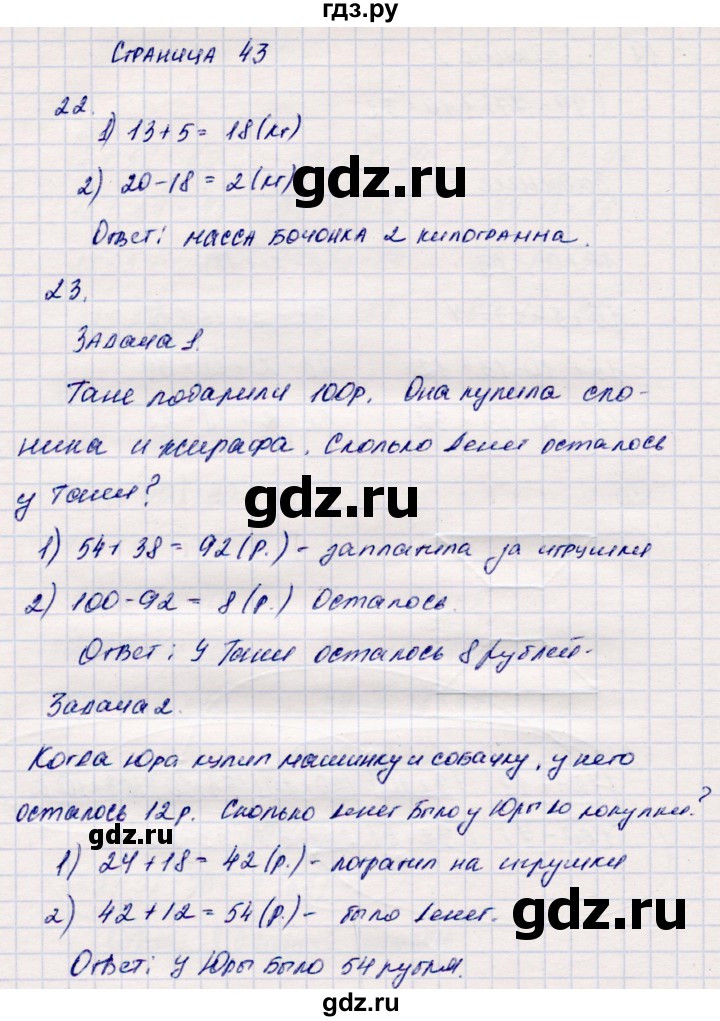 гдз.ру
Страница 43
22.
1) 13+5 = 18 (кг)
2) 20-18 = 2 (кг)
gdz.ru
Ответ: масса бочонка 2 килограмма.
23.
Задача 1.
Тане подарили 100р. Она купила сло-
ника и жирафа. Сколько денег осталось
у Тани?
gdz.ru
1) 54+38 = 92 (р.) - заплатила за игрушки
2) 100-92 = 8 (р.) Осталось.
Ответ: У Тани осталось 8 рублей.
Задача 2.
Когда Юра купил машинку и собачку, у него
осталось 12р. Сколько денег было у Юры до покупки?
gdz.ru
1) 24+18 = 42 (р.) - потратил на игрушки
2) 42+12 = 54 (р.) - было денег.
gdz.ru
Ответ: у Юры было 54 рубля.
gdz.ru